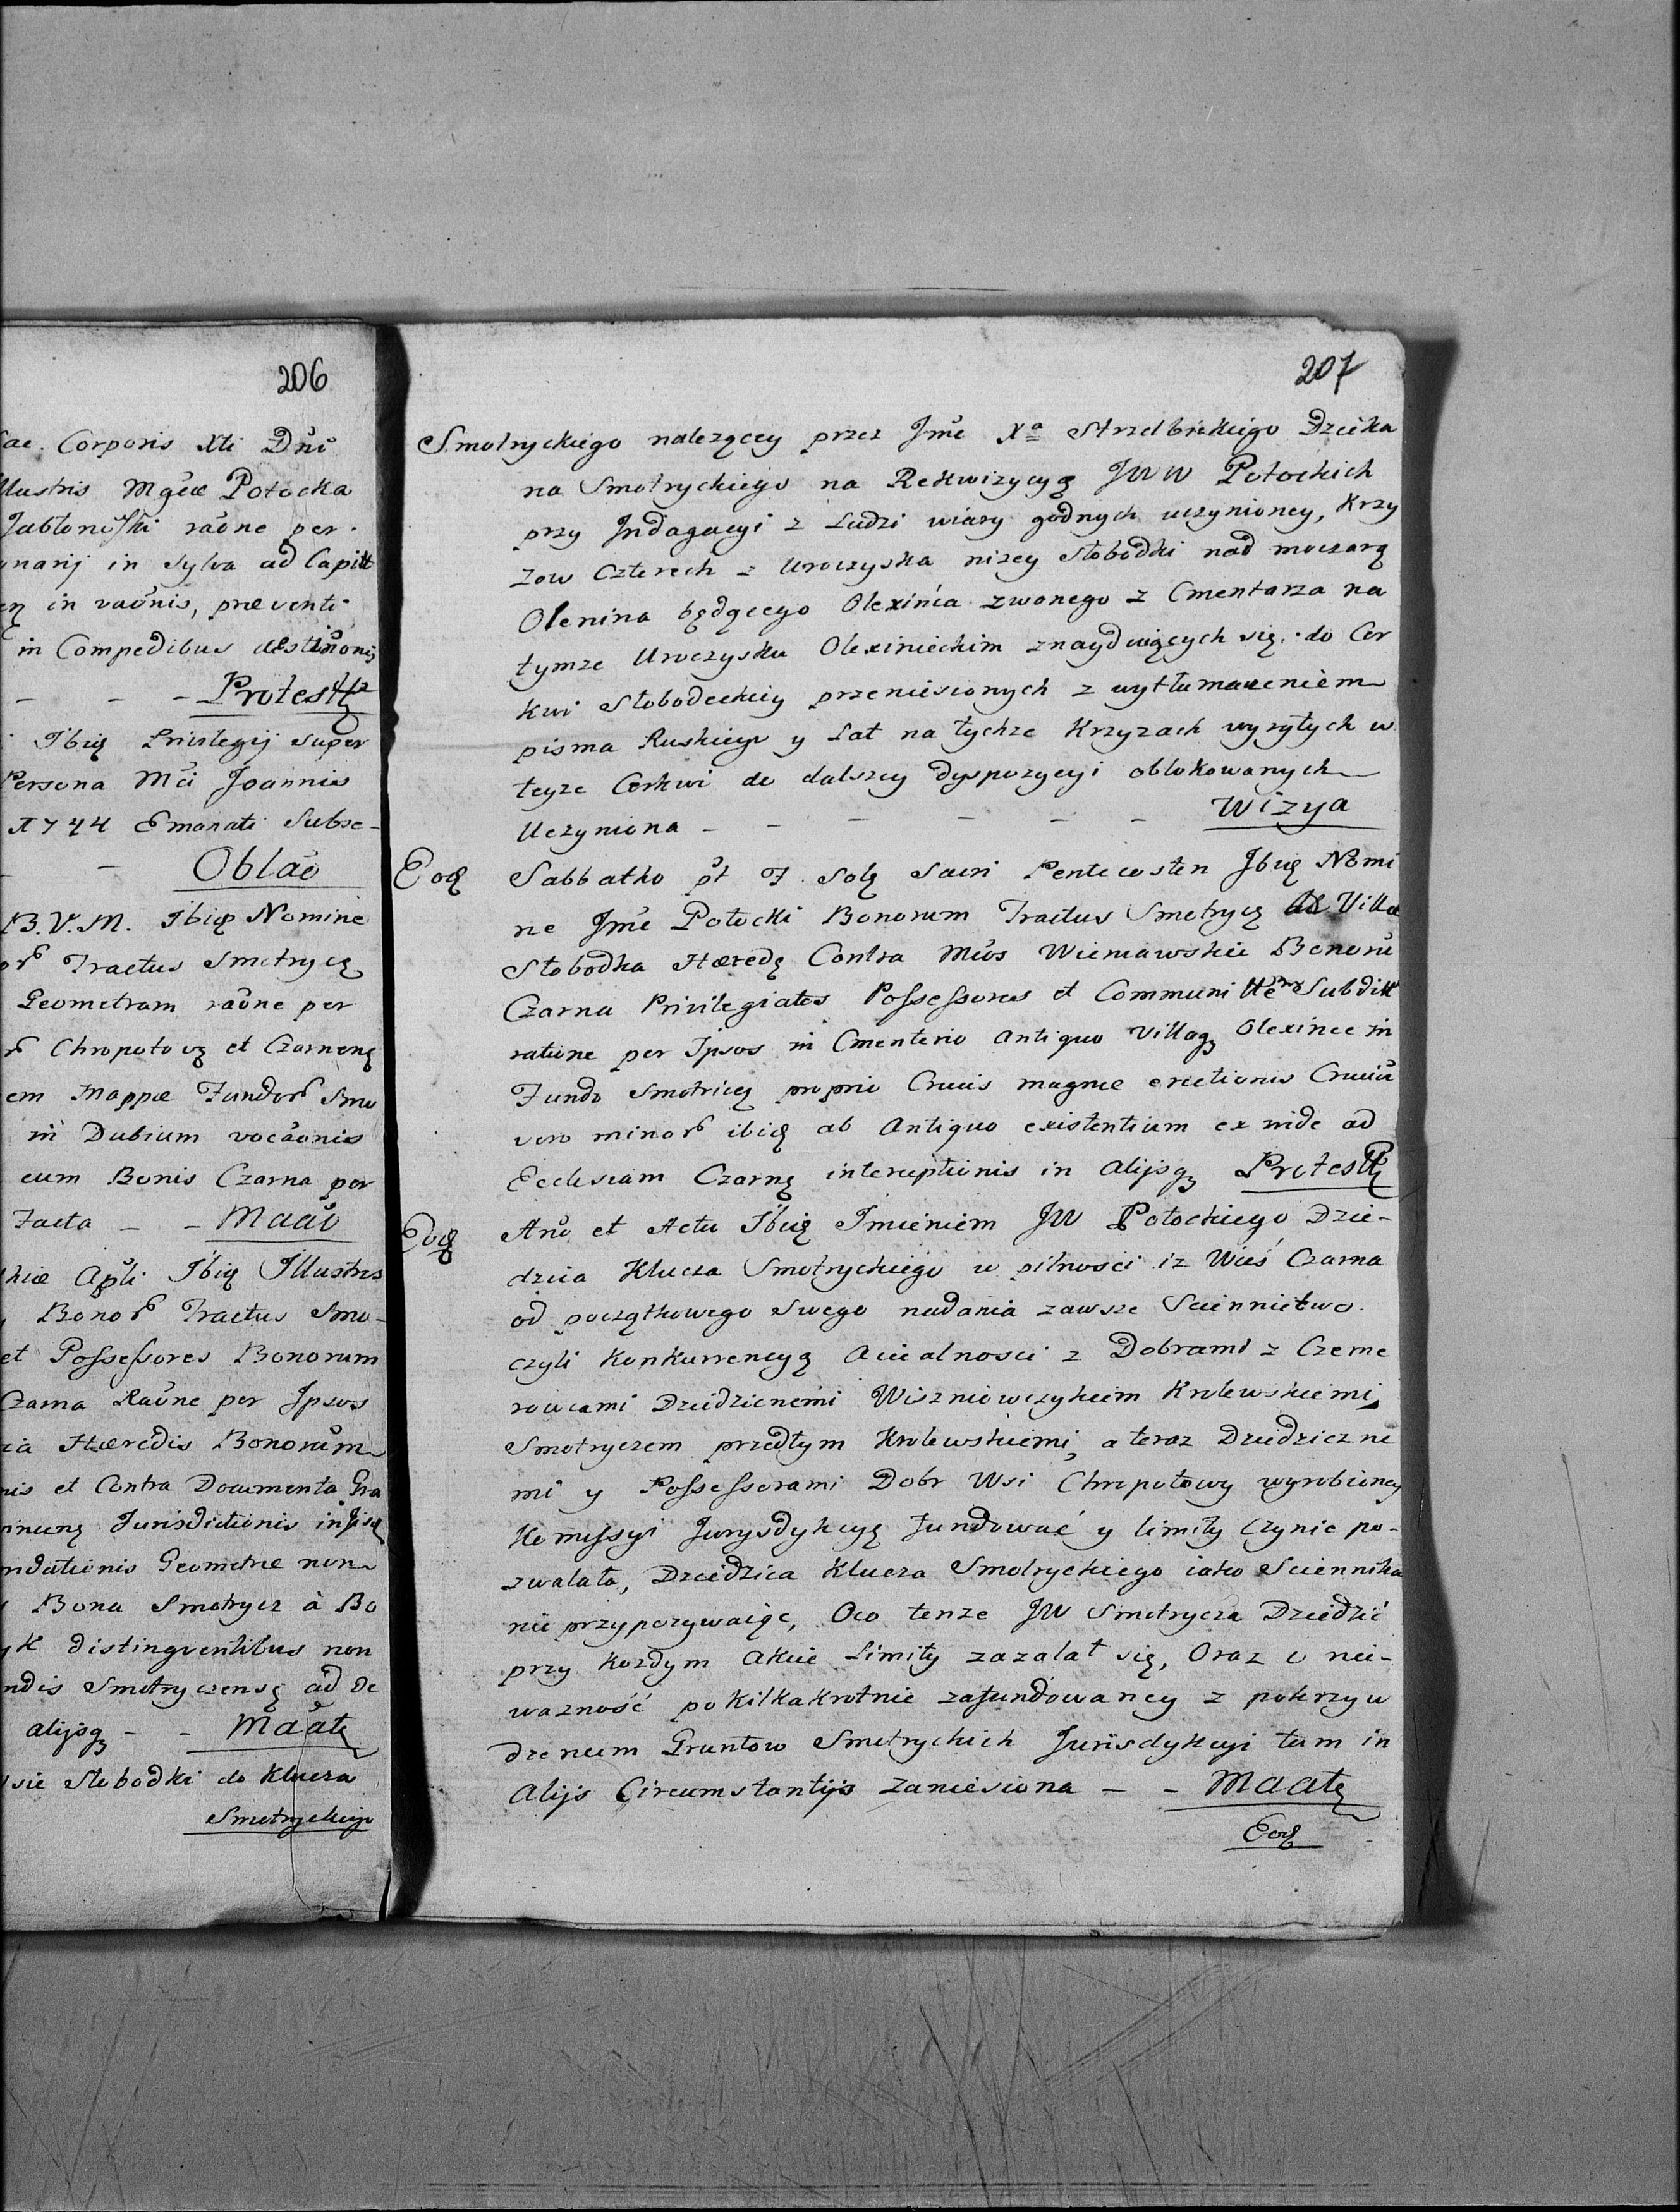 206
ae. Corporis Xti Dni
llustris Mgcae Potocka
Jabłonowski raone per
onarij in Sylva ad Capitt
in raonis, praeventi
in Compedibus
– – – Protestt
Ibiq Privilegij super
Persona Mci Joannis
1744 Emanati Subse-
– Oblao
B. V. M. Ibiq Nomine
Tractus Smotrycz
Geometram raone per
Chropotova et Czarneng
em Mappae Fundor Smo
in Dubium vocaonis
cum Bonis Czarna per
Facta – – Maao
Apli Ibiq Illustris
Bonor Tractus Smo-
et Possessores Bonorum
Czarna Raone per Ipsos
Haeredis Bonorum
nis et Contra Documenta Gra
Jurisdictionis
ndationis Geometrae non
Bona Smotrycz à Bo
distingventibus non
ndis Smotryczens ad De
alijsq – – Maatt
sie Słobodki do Klucza
Smotryckiego
207
Smotryckiego nalezącey przez Jmć Xa Strzelbickiego Dzieka
na Smotryckiego na Rekwizycyą JWW Potockich
przy Indagacyi z Ludzi wiary godnych uczynioney, Krzy
zow Czterech z Uroczyska nizey Słobodki nad moczarą
Olenina będącego Olexińca zwonego z Cmentarza na
tymze Uroczysku Olexinieckim znayduiących się do Cer
kwi Słobodeckiey przeniesionych z wytłumaczeniem
pisma Ruskiego y Lat na tychze Krzyzach wyrytych w
teyze Cerkwi do dalszey dyspozycyi oblokowanych
Uczyniona – – – – – – Wizya
Eoq Sabbatho pt F. Solq Sacri Pentecosten Ibiq Nomi
ne Jmc Potocki Bonorum Tractus Smotrycz Villa
Słobodka Haeredq Contra Mcos Wieniawskie Bonoru
Czarna Privilegiatos Possessores et Communi Subditt
ratione per Ipsos in Cmenterio antiquo Villaq Olexince in
Fundo Smotricz proprio Crucis magnae erectionis Cruciu
vero minor ibiq ab Antiquo existentium ex inde ad
Ecclesiam Czarnq interceptionis in alijsq Protestt
Eoq Ano et Actu Ibiq Imieniem JW Potockiego Dzie-
dzica Klucza Smotryckiego w pilnosci iz Wieś Czarna
od początkowego Swego nadania zawsze Sciennictwo
czyli Konkurrencyą Aciealnosci z Dobrami z Czeme
rowcami Dziedzicnemi Wiszniowczykiem Krolewskiemi,
Smotryczem przedtym Krolewskiemi, a teraz Dziedziczne
mi y Possessorami Dobr Wsi Chropotowy wyrobioney
Komissyi Jurysdykcyą fundować y limity Czynic po-
zwalała, Dziedzica Klucza Smotryckiego iako Sciennika
nie przypozywaiąc, Oco tenze JW Smotrycza Dziedzić
przy kozdym Akcie Limity zazalał się, Oraz o nie-
wazność pokilkakrotnie zafundowaney z pokrzyw
dzeniem Gruntow Smotryckich Jurisdykcyi tum in
Alijs Circumstantijs zaniesiona – – Maatt
Eoq